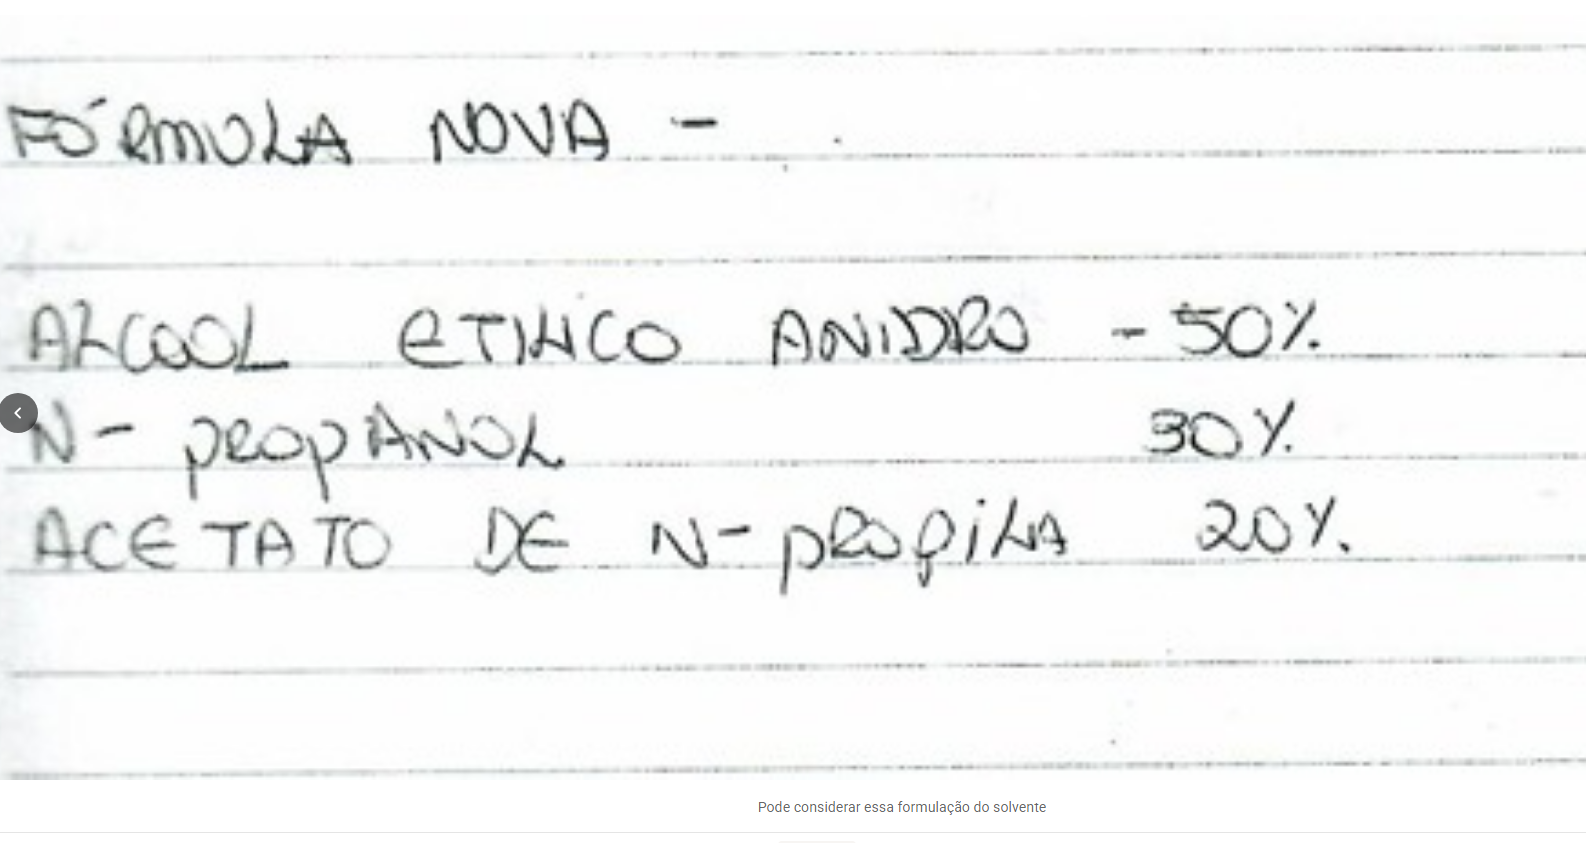 FÓRMULA NOVA -
ALCOOL ETILICO ANIDRO - 50%
N- PROPANOL 30%
ACETATO DE N-PROPILA 20%
Pode considerar essa formulação do solvente